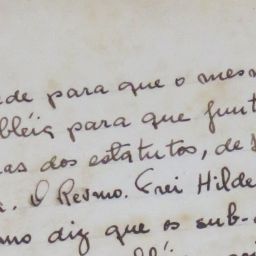 ade para que o mesm
bléia para que funt
as dos estatutos, de
. O Revmo. Frei Hilde
mo diz que os sub-